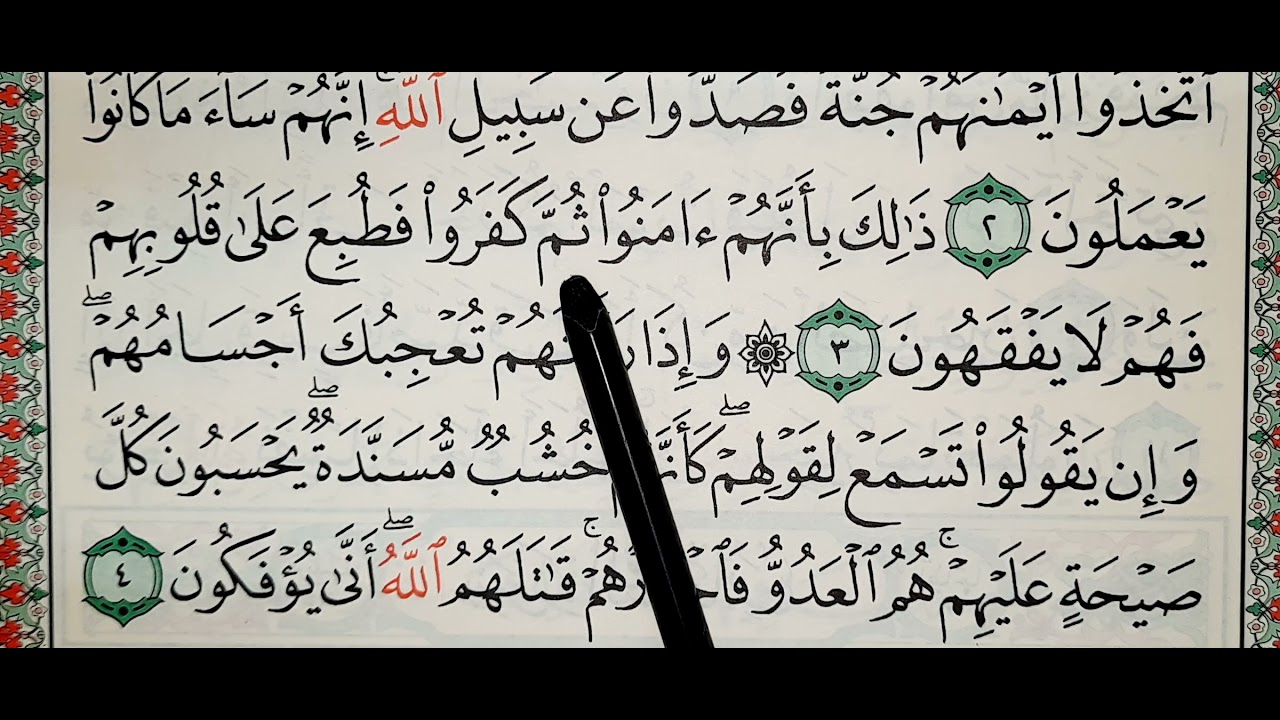 ٱتَّخَذُوٓا۟ أَيْمَـٰنَهُمْ جُنَّةً فَصَدُّوا۟ عَن سَبِيلِ ٱللَّهِ إِنَّهُمْ سَآءَ مَا كَانُوا۟
يَعْمَلُونَ ٢ ذَٰلِكَ بِأَنَّهُمْ ءَامَنُوا۟ ثُمَّ كَفَرُوا۟ فَطُبِعَ عَلَىٰ قُلُوبِهِمْ
فَهُمْ لَا يَفْقَهُونَ ٣ ۞ وَإِذَا تُعْجِبُكَ أَجْسَامُهُمْ ۖ
وَإِن يَقُولُوا۟ تَسْمَعْ لِقَوْلِهِمْ ۖ خُشُبٌ مُّسَنَّدَةٌ ۖ يَحْسَبُونَ كُلَّ
صَيْحَةٍ عَلَيْهِمْ ۚ هُمُ ٱلْعَدُوُّ قَـٰتَلَهُمُ ٱللَّهُ ۖ أَنَّىٰ يُؤْفَكُونَ ٤